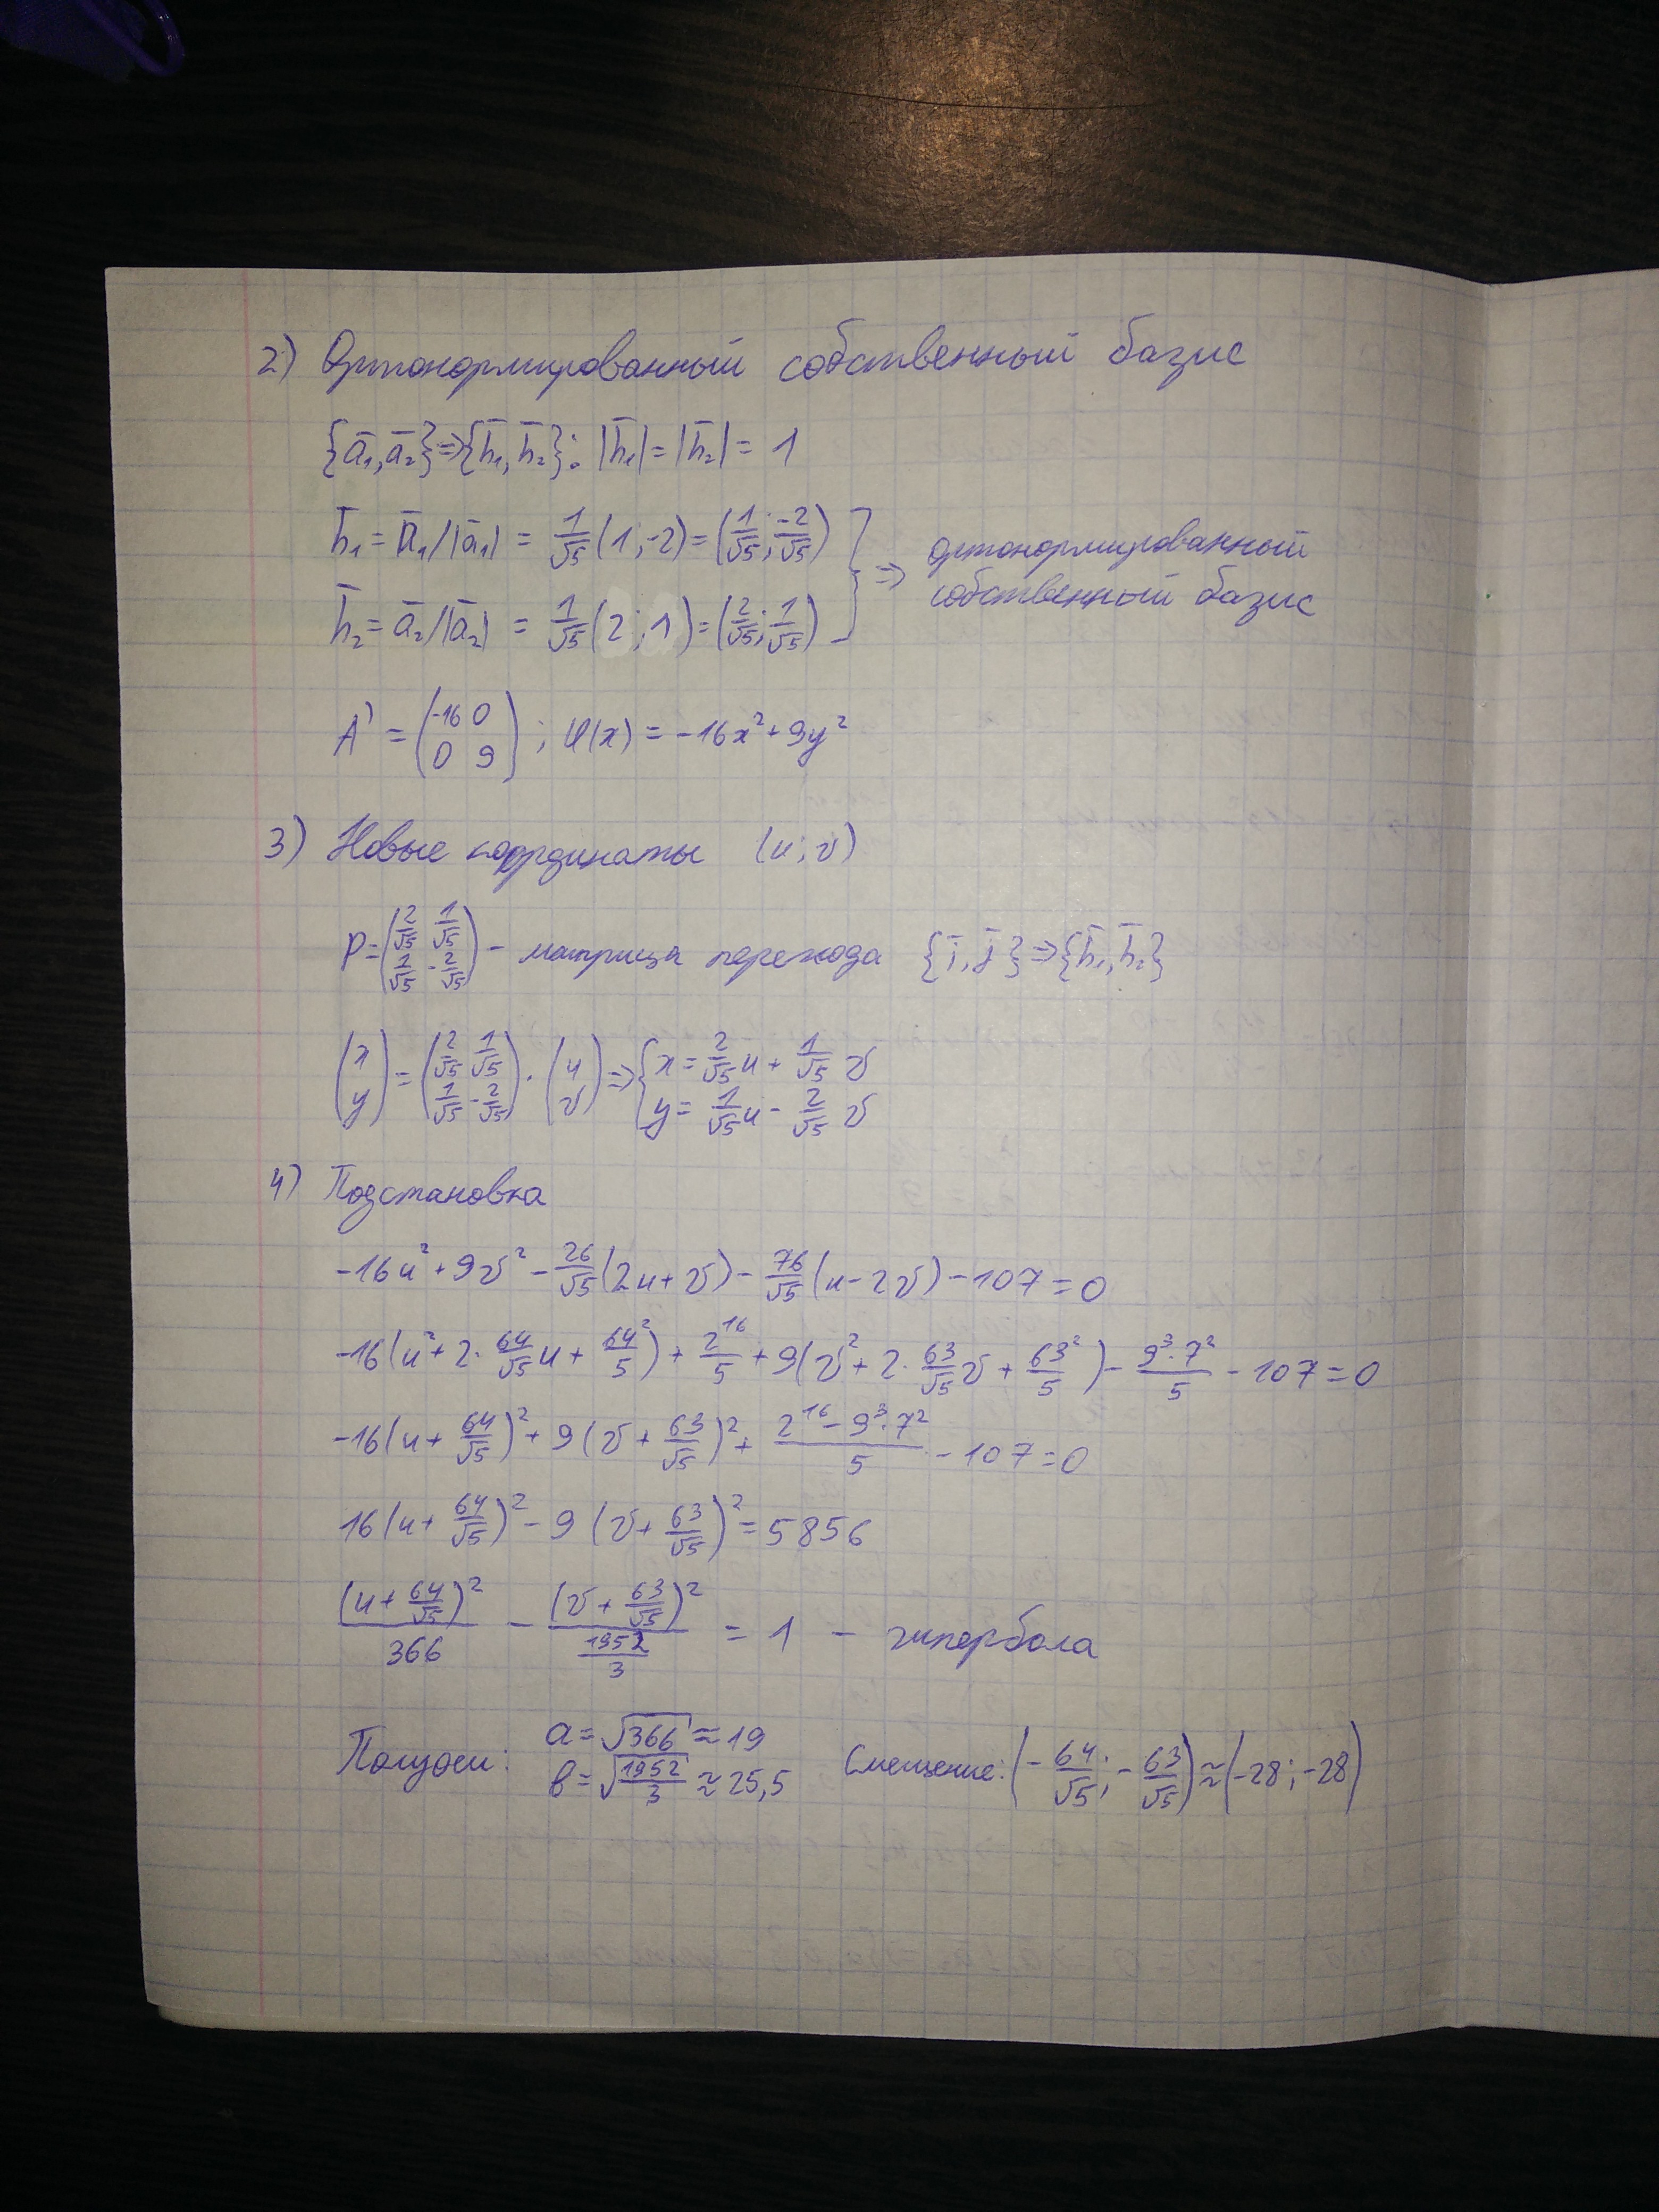 2) Ортонормированный собственный базис
{ā₁, ā₂} ⇒ {h̄₁, h̄₂}: |h̄₁| = |h̄₂| = 1
h̄₁ = ā₁/|ā₁| = 1/√5 (1; -2) = (1/√5; -2/√5)
h̄₂ = ā₂/|ā₂| = 1/√5 (2; 1) = (2/√5; 1/√5)
} ⇒ ортонормированный
собственный базис
A' = (-16 0
0 9); φ(x) = -16x² + 9y²
3) Новые координаты (u; v)
P = (2/√5 1/√5
1/√5 -2/√5) - матрица перехода {ī, j̄} ⇒ {h̄₁, h̄₂}
(x
y) = (2/√5 1/√5
1/√5 -2/√5) · (u
v) ⇒ { x = 2/√5 u + 1/√5 v
y = 1/√5 u - 2/√5 v
4) Подстановка
-16u² + 9v² - 26/√5 (2u + v) - 76/√5 (u - 2v) - 107 = 0
-16(u² + 2· 64/√5 u + 64²/5) + 2¹⁶/5 + 9(v² + 2· 63/√5 v + 63²/5) - 9³·7²/5 - 107 = 0
-16(u + 64/√5)² + 9(v + 63/√5)² + (2¹⁶ - 9³·7²)/5 - 107 = 0
16(u + 64/√5)² - 9(v + 63/√5)² = 5856
(u + 64/√5)²/366 - (v + 63/√5)²/(1952/3) = 1 - гипербола
Полуоси: a = √366 ≈ 19
b = √(1952/3) ≈ 25,5
Смещение: (-64/√5; -63/√5) ≈ (-28; -28)